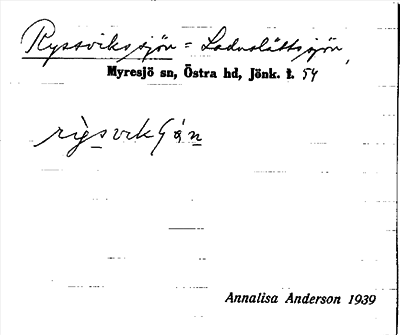 Ryssvikssjön = Laduslättssjön,
Myresjö sn, Östra hd, Jönk. l. 54
Annalisa Anderson 1939